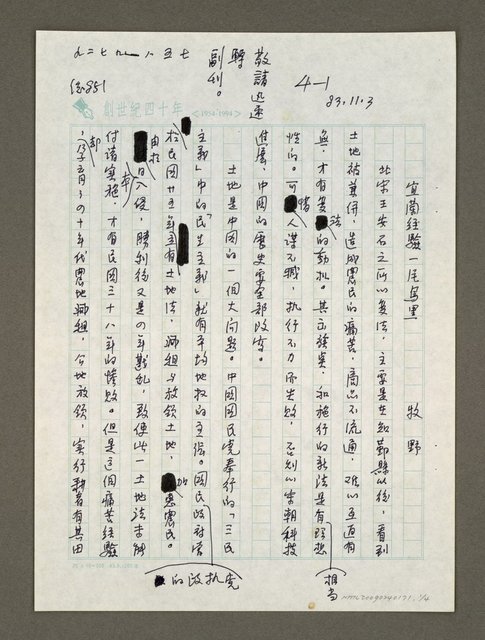 九二七九八五七
4-1
83.11.3
敬請迅速
轉
副刊。
信851
創世紀四十年
<1954-1994>
宜蘭經驗一尾鳥里
牧野
北宋王安石之所以變法,主要是其知鄞縣以後,看到
土地被兼併,造成農民的痛苦,商品不流通,難以互通有
無,才有變法的動機。其立積累,和施行的新法是有理想
相當
性的。可惜人謀不臧,執行不力而失敗,否則以宋朝科技
進展,中國的歷史要全部改寫。
土地是中國的一個大問題。中國國民黨奉行的「三民
主義」中的「民生主義」就有平均地權的主張。國民政府當
黨執政的
於民國廿五年立有土地法,減租與放領土地,加惠農民。
由於日人侵,勝利後又是四年戡亂,致使此一土地法未能
付諸實施,才有民國三十八年的慘敗。但是這個痛苦經驗
卻
,四十年代農地減租,公地放領,實行耕者有其田
NMTL20090240171,1/4